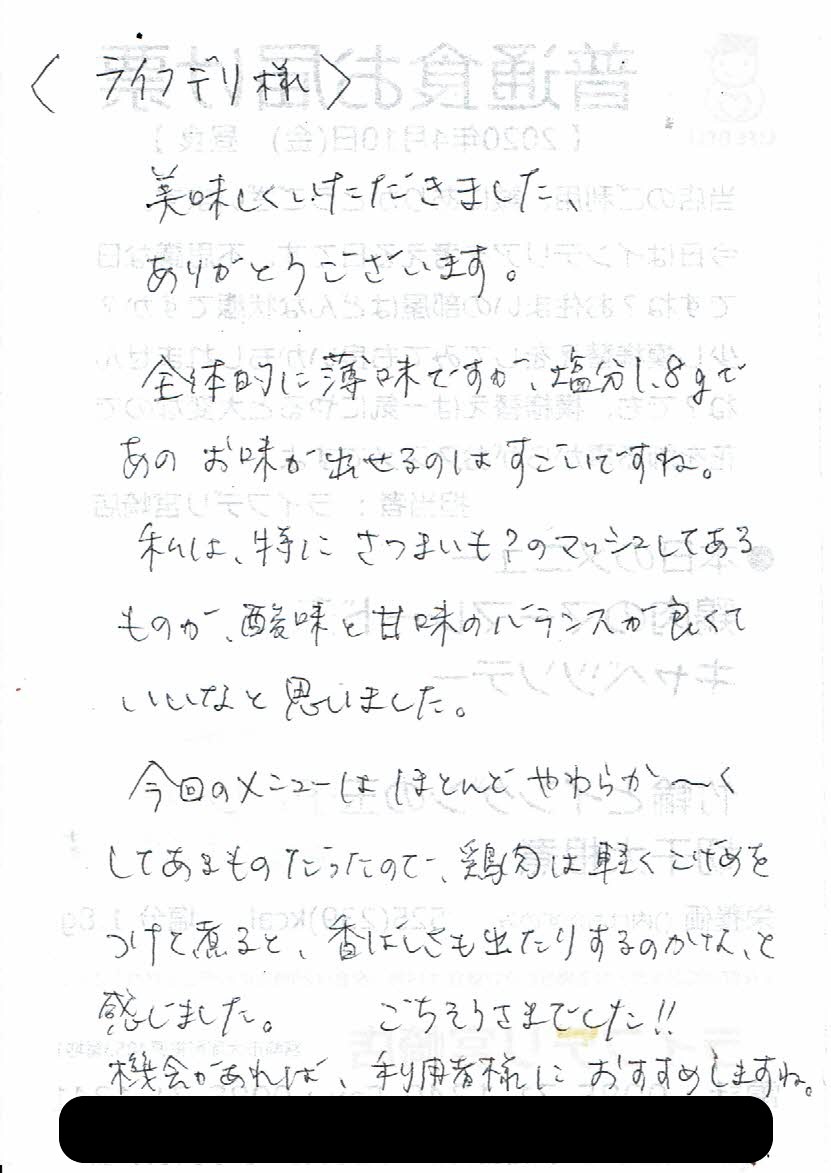 〈ライフデリ様〉
美味しくいただきました、
ありがとうございます。
全体的に薄味ですが、塩分1.8gで
あのお味が出せるのはすごいですね。
私は、特にさつまいも?のマッシュしてある
ものが、酸味と甘味のバランスが良くて
いいなと思いました。
今回のメニューはほとんどやわらか〜く
してあるものだったので、鶏肉は軽くこげめを
つけて煮ると、香ばしさも出たりするのかな、と
感じました。 ごちそうさまでした!!
機会があれば、利用者様におすすめしますね。